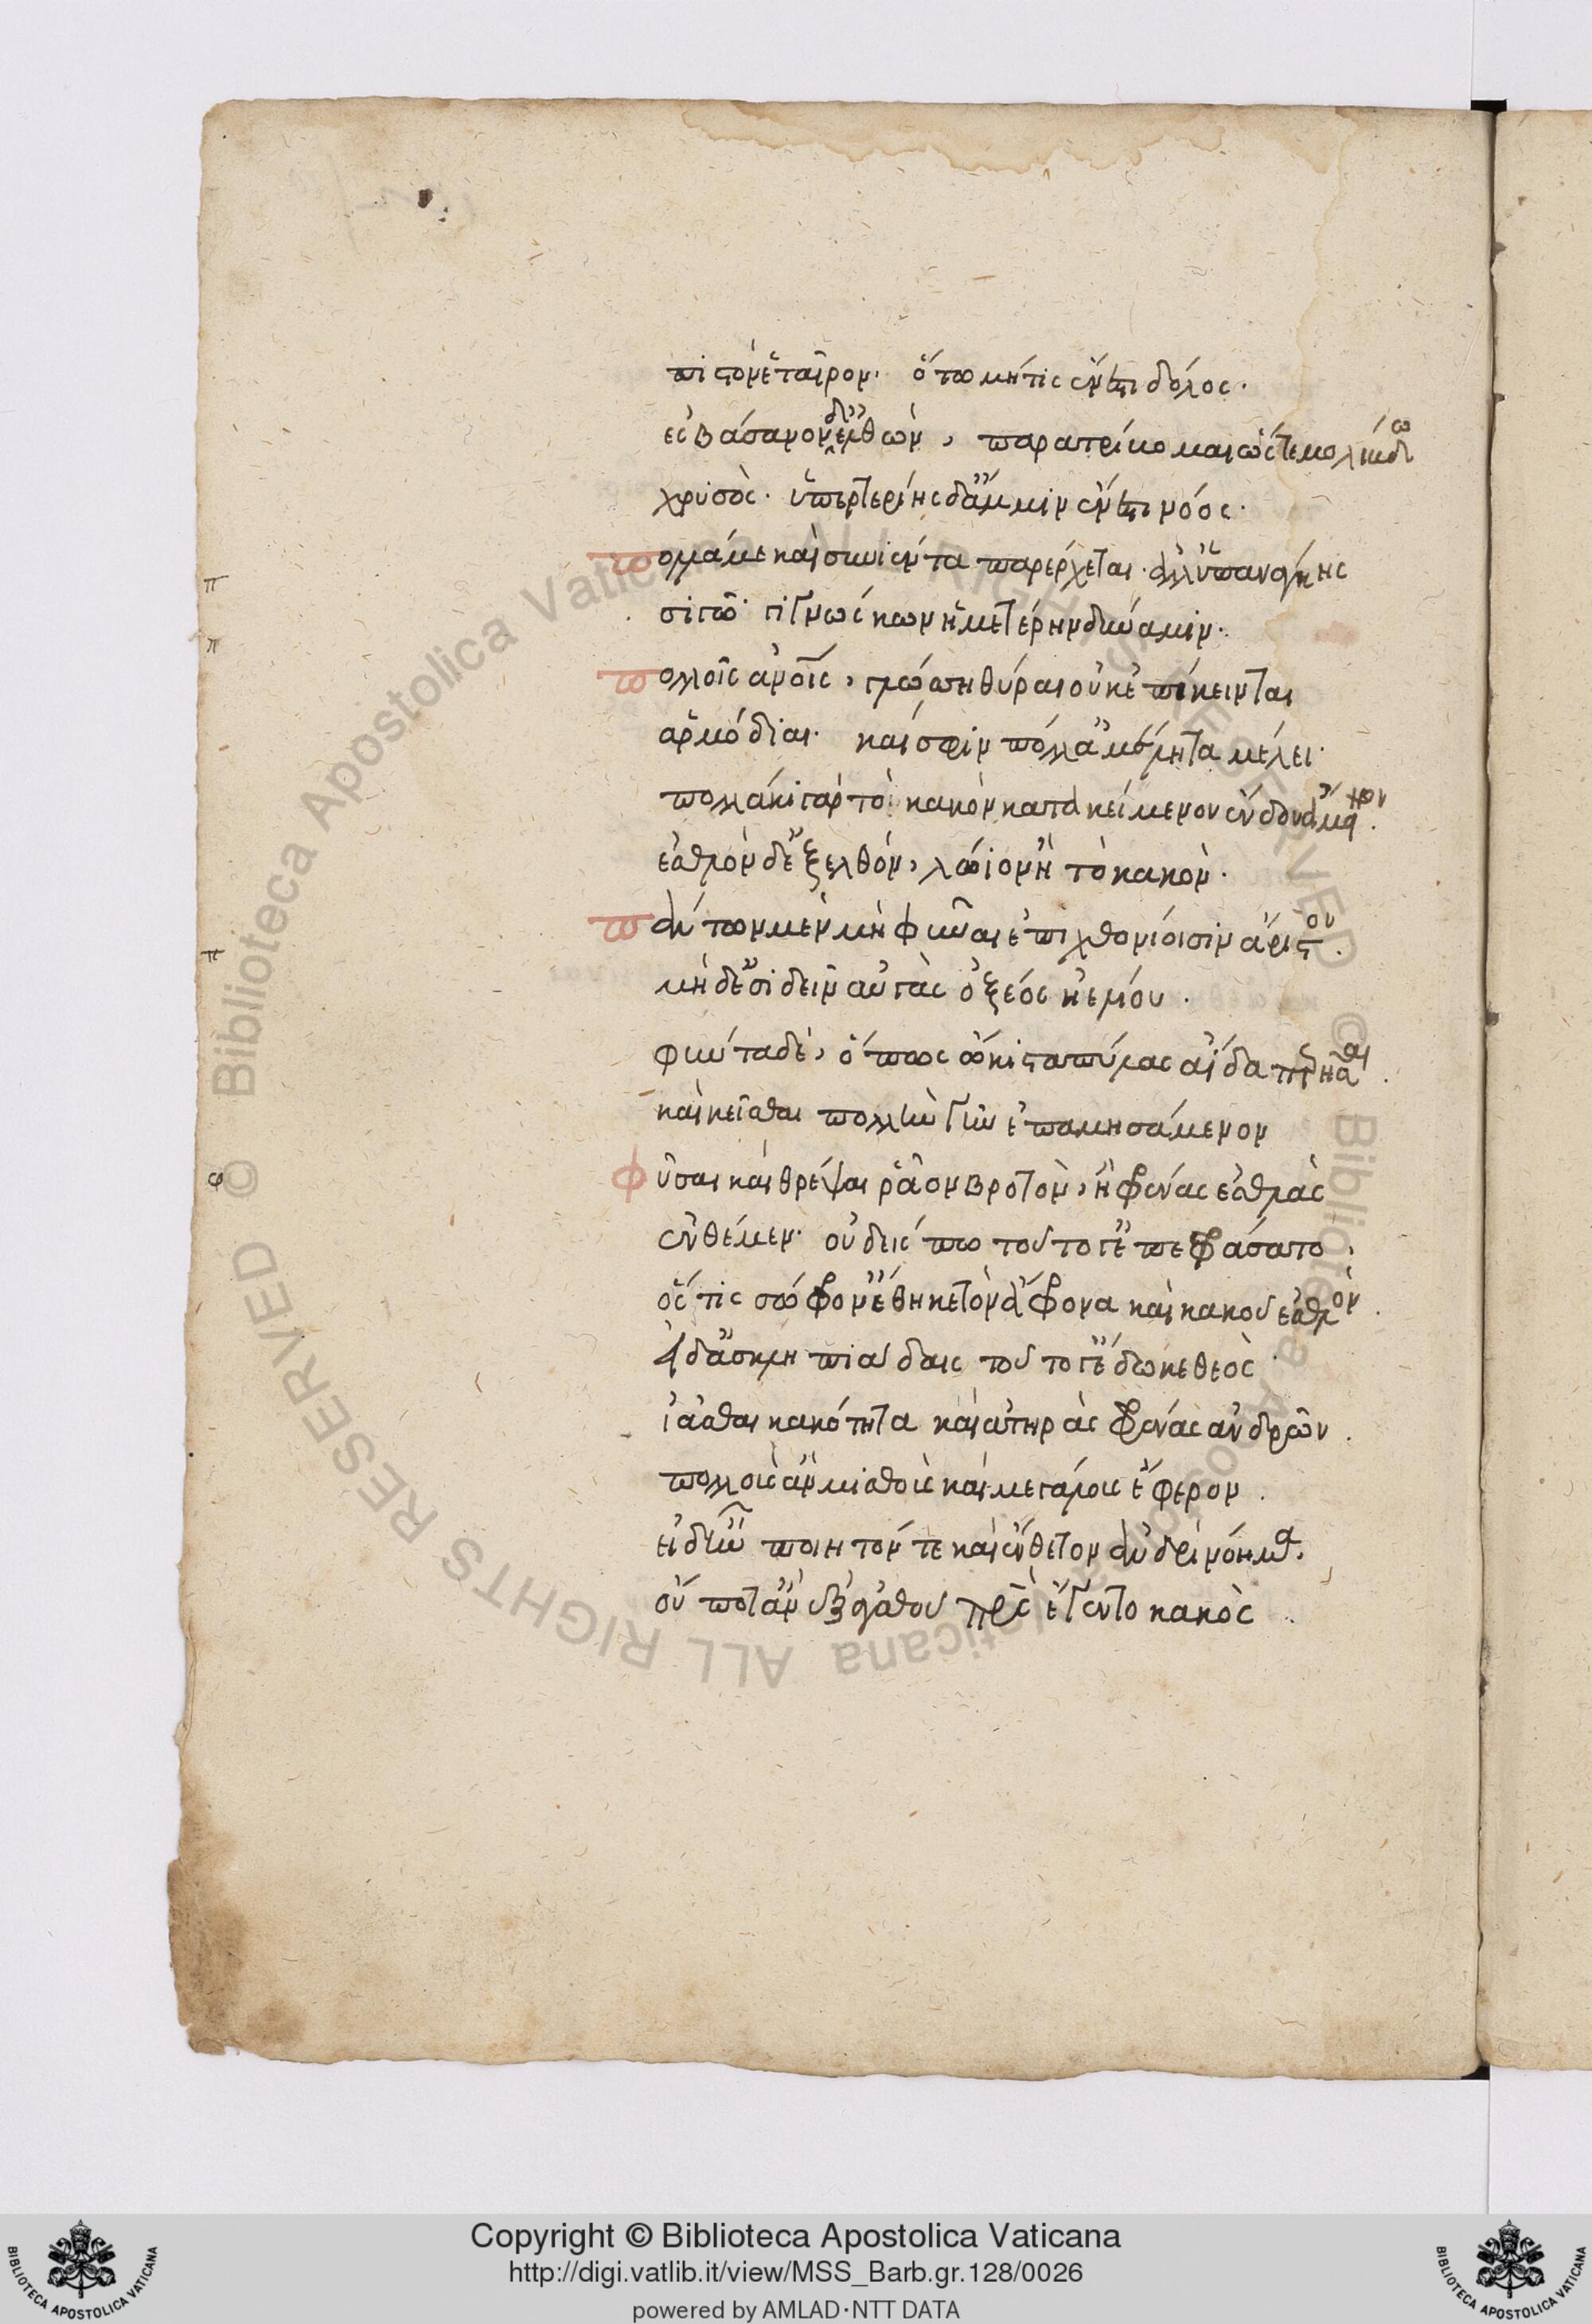 πιστὸν ἑταῖρον. ὅτω μήτις ἔνεστι δόλος.
ἐς βάσανον δ' ἐλθὼν, παρατρίβομαι ὥστε μολίβδω
χρυσός. ὑπερτερίης δ' ἄμμιν ἔνεστι νόος.
πολλά με καὶ συνιέντα παρέρχεται. ἀλλ' ὑπ' ἀνάγκης
σιγῶ. γιγνώσκων ἡμετέρην δύναμιν.
πολλοῖς ἀν οἷς, γλώσση θύραι οὐκ ἐπίκεινται
ἁρμόδιαι. καί σφιν πόλλ' ἀμέλητα μέλει.
πολλάκι γὰρ τὸ κακὸν κατακείμενον ἔνδον ἄμεινον.
ἐσθλὸν δ' ἐξελθόν, λώϊον ἢ τὸ κακόν.
πάντων μὲν μὴ φῦναι ἐπιχθονίοισιν ἄριστον.
μὴ δ' ἐσιδεῖν αὐγὰς ὀξέος ἠελίου.
φύντα δέ, ὅπως ὤκιστα πύλας ἀΐδαο περῆσαι.
καὶ κεῖσθαι πολλὴν γῆν ἐπαμησάμενον
φῦσαι καὶ θρέψαι ῥᾶον βροτόν, ἢ φρένας ἐσθλὰς
ἐνθέμεν. οὐδείς πω τοῦτό γ' ἐπεφράσατο,
ὅς τις σώφρον' ἔθηκε τὸν ἄφρονα καὶ κακοῦ ἐσθλόν.
εἰ δ' ἀσκληπιάδαις τοῦτό γ' ἔδωκε θεός.
ἰᾶσθαι κακότητα καὶ ἀτηρὰς φρένας ἀνδρῶν.
πολλοὺς ἂν μισθοὺς καὶ μεγάλους ἔφερον.
εἰ δ' ἦν ποιητόν τε καὶ ἔνθετον ἀνδρὶ νόημα,
οὔ ποτ' ἂν ἐξ ἀγαθοῦ πατρὸς ἔγεντο κακός
π
π
π
φ
Copyright © Biblioteca Apostolica Vaticana
http://digi.vatlib.it/view/MSS_Barb.gr.128/0026
powered by AMLAD·NTT DATA
BIBLIOTECA APOSTOLICA VATICANA
BIBLIOTECA APOSTOLICA VATICANA
© Biblioteca Apostolica Vaticana ALL RIGHTS RESERVED © Biblioteca Apostolica Vaticana ALL RIGHTS RESERVED